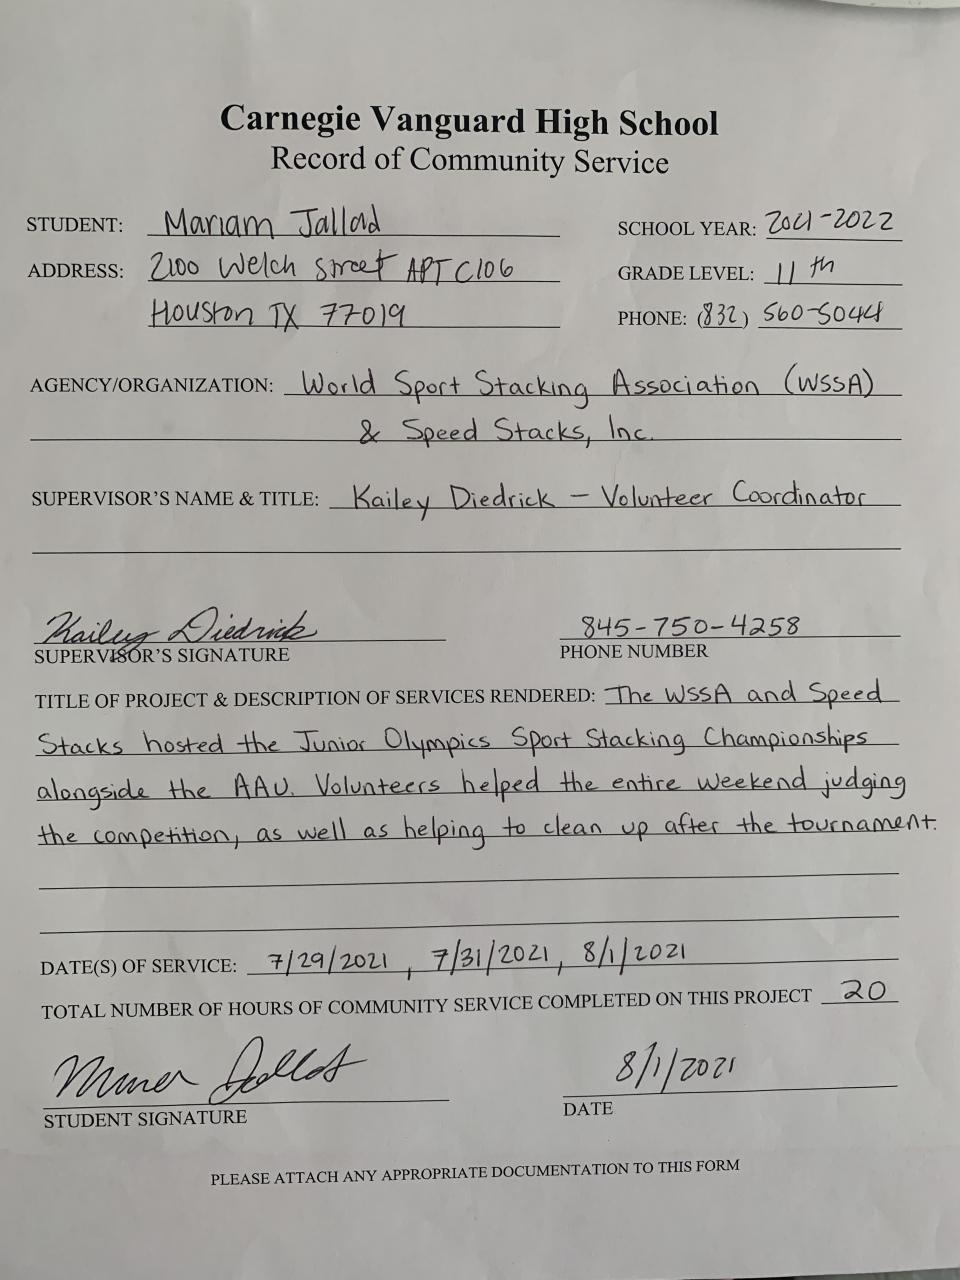 Carnegie Vanguard High School
Record of Community Service
STUDENT: Mariam Jallad SCHOOL YEAR: 2021-2022
ADDRESS: 2100 Welch Street APT C106 GRADE LEVEL: 11th
Houston TX 77019 PHONE: (832) 560-5044
AGENCY/ORGANIZATION: World Sport Stacking Association (WSSA)
& Speed Stacks, Inc.
SUPERVISOR'S NAME & TITLE: Kailey Diedrick – Volunteer Coordinator
Kailey Diedrick 845-750-4258
SUPERVISOR'S SIGNATURE PHONE NUMBER
TITLE OF PROJECT & DESCRIPTION OF SERVICES RENDERED: The WSSA and Speed
Stacks hosted the Junior Olympics Sport Stacking Championships
alongside the AAU. Volunteers helped the entire weekend judging
the competition, as well as helping to clean up after the tournament.
DATE(S) OF SERVICE: 7/29/2021, 7/31/2021, 8/1/2021
TOTAL NUMBER OF HOURS OF COMMUNITY SERVICE COMPLETED ON THIS PROJECT 20
8/1/2021
STUDENT SIGNATURE DATE
PLEASE ATTACH ANY APPROPRIATE DOCUMENTATION TO THIS FORM